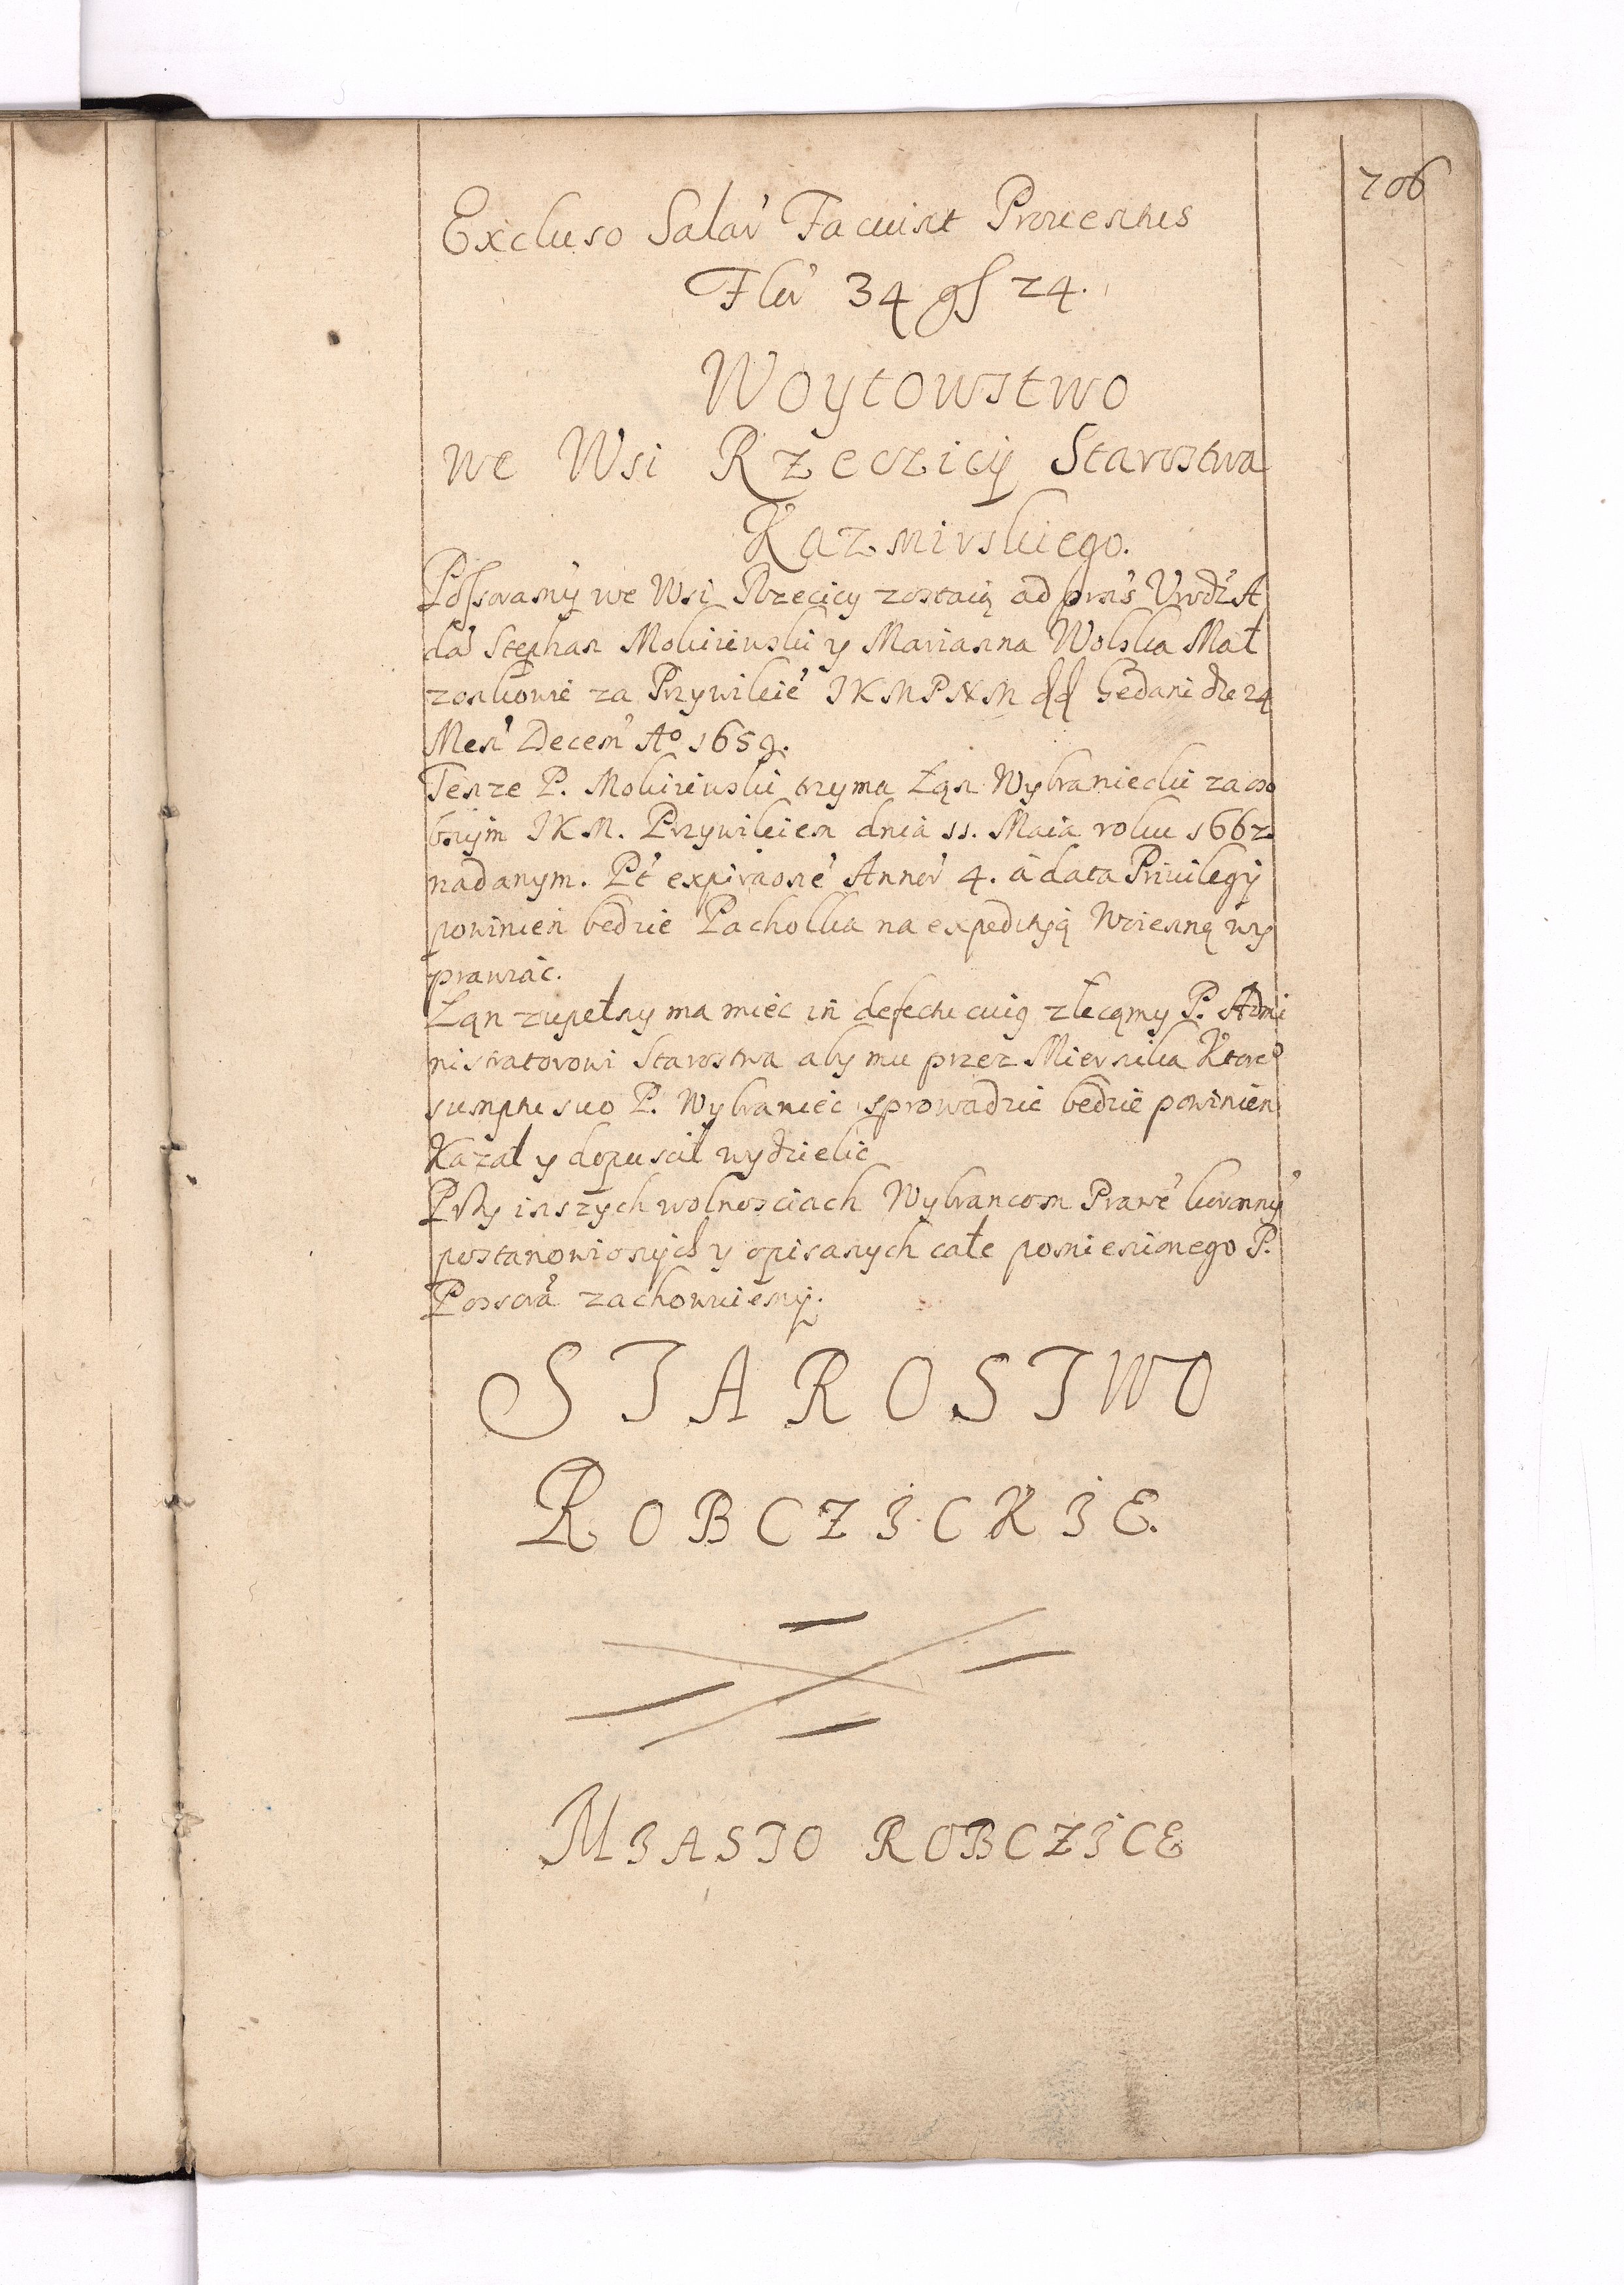 706
Excluso Salar' Faciunt Prouentus
Flor' 34 gs 24.
Woytowstwo
we Wsi Rzeczicÿ Starostwa
Kazmirskiego.
Possoramÿ we Wsi Rzecicy zostaią ad prns' Vrodz' A
da' Stephan Mokrzewski y Marianna Wolska Mał
zonkowie za Przywileie' JKMPNM dd Gedani die 24
Men' Decem' Ao 1659.
Tenze P. Mokrzewski trzyma Łąn Wybraniecki za oso
bnÿm JKM. Przywileien dnia 11. Maia roku 1662
nadanym. Pt' expiraone' Annor' 4. à data Priuilegÿ
powinien bedzie Pachołka na expedityą Woienną wy
prawiac.
Łąn zupełny ma miec in defectu cuig zlecąmy P. Admi
nistratorowi Starostwa aby mu przez Miernika Ktoreo
sumptu suo P. Wybraniec sprowadzic bedzie powinien
Kazał y dopuscił wydzielic
Przy inszych wolnosciach Wybrancom Prawe'
postanowionÿch y opisanych cale pomienionego P.
Possora' zachowuiemÿ.
STAROSTWO
ROBCZICKIE.
MIASTO ROBCZICE